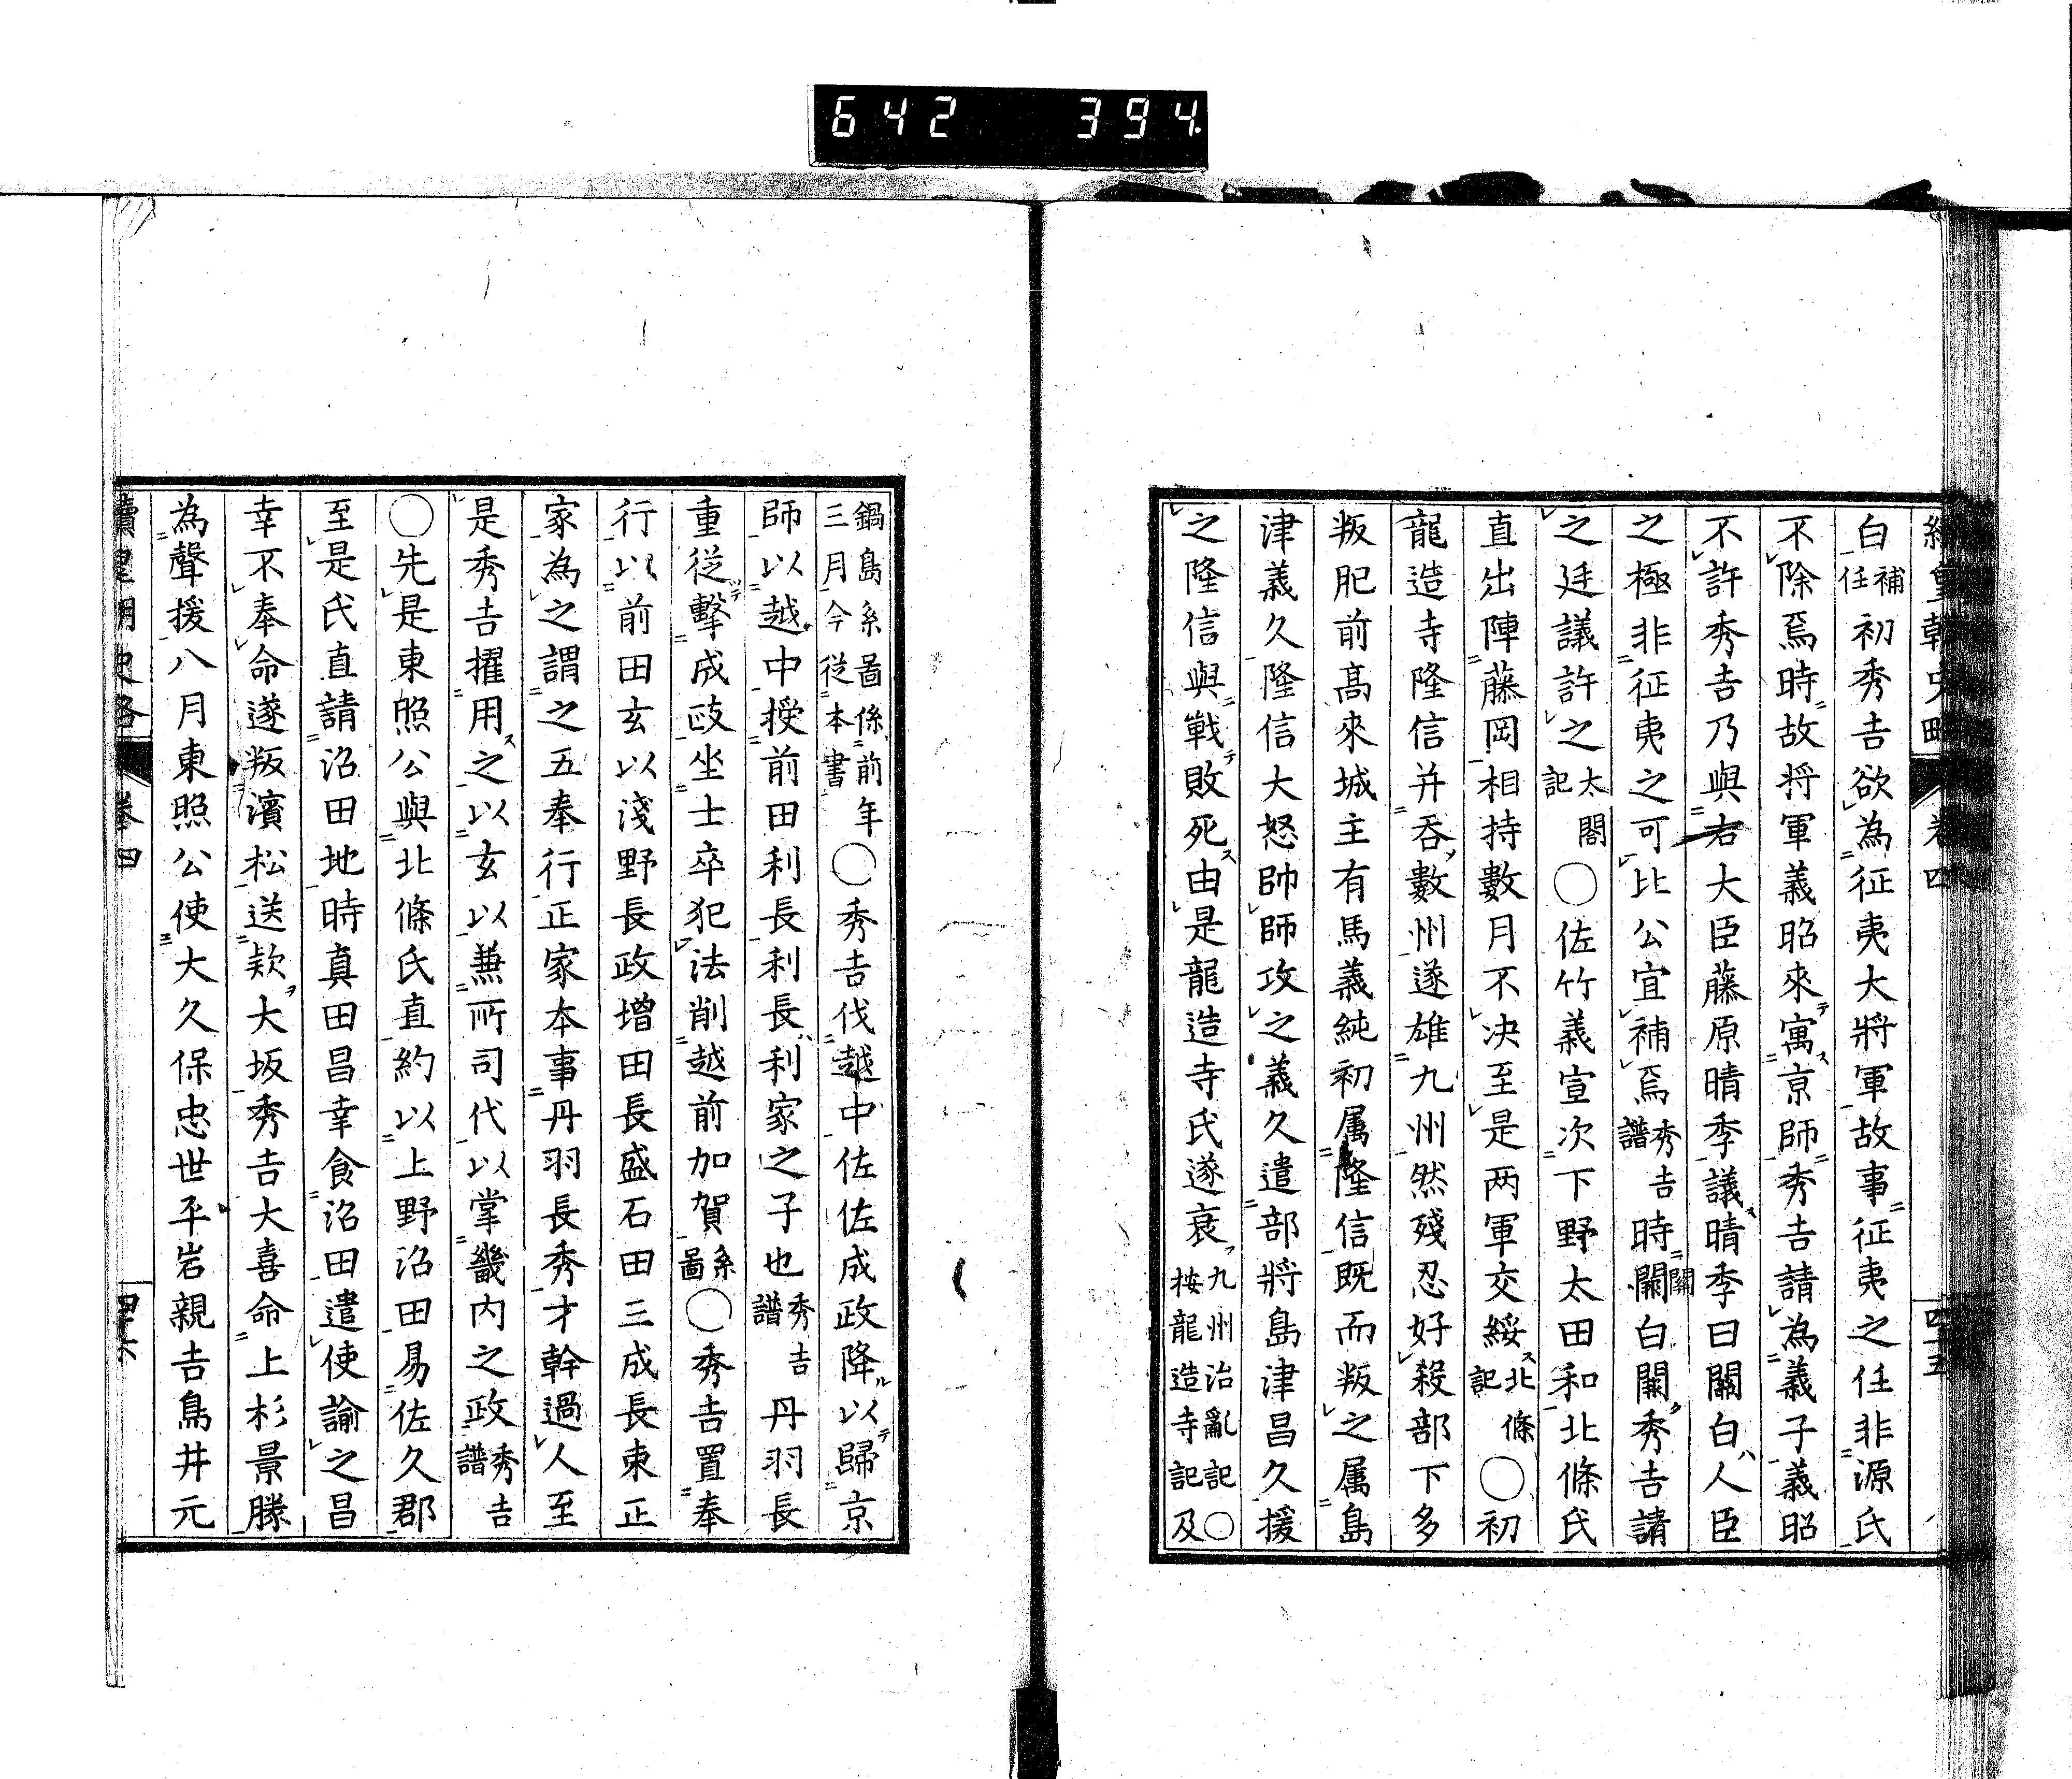 642 394.
續皇朝史略 卷四 四十五
白補任初秀吉欲為征夷大將軍故事征夷之任非源氏
不除焉時故將軍義昭來寓京師秀吉請為義子義昭
不許秀吉乃與右大臣藤原晴季議晴季曰關白人臣
之極非征夷之可比公宜補焉秀吉譜時關白闕秀吉請
之廷議許之太閤記〇佐竹義宣次下野太田和北條氏
直出陣藤岡相持數月不決至是两軍交綏北條記〇初
龍造寺隆信并吞數州遂雄九州然殘忍好殺部下多
叛肥前高來城主有馬義純初属隆信既而叛之属島
津義久隆信大怒帥師攻之義久遣部將島津昌久援
之隆信與戰敗死由是龍造寺氏遂衰九州治亂記〇按龍造寺記及
鍋島系啚係前年三月今從本書〇秀吉伐越中佐佐成政降以歸京
師以越中授前田利長利長利家之子也秀吉譜丹羽長
重從擊成政坐士卒犯法削越前加賀系啚〇秀吉置奉
行以前田玄以淺野長政增田長盛石田三成長束正
家為之謂之五奉行正家本事丹羽長秀才幹過人至
是秀吉擢用之以玄以兼所司代以掌畿内之政秀吉譜
〇先是東照公與北條氏直約以上野沼田易佐久郡
至是氏直請沼田地時真田昌幸食沼田遣使諭之昌
幸不奉命遂叛濱松送款大坂秀吉大喜命上杉景勝
為聲援八月東照公使大久保忠世平岩親吉鳥井元
續皇朝史略 卷四 四十六